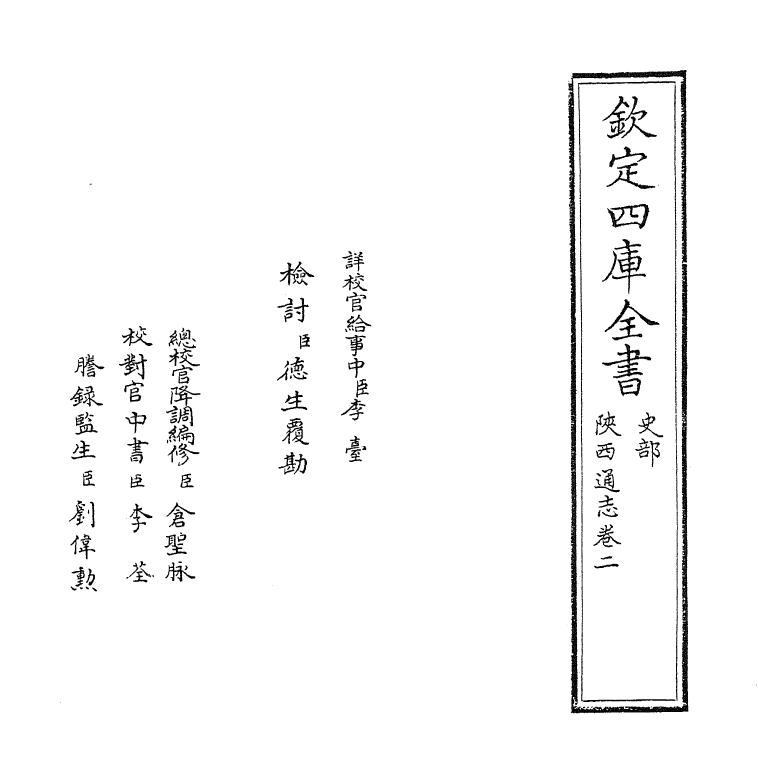 欽定四庫全書
史部
陜西通志卷二
詳校官給事中臣李臺
檢討臣徳生覆勘
總校官降調編修臣倉聖脉
校對官中書臣李荃
謄録監生臣劉偉勲